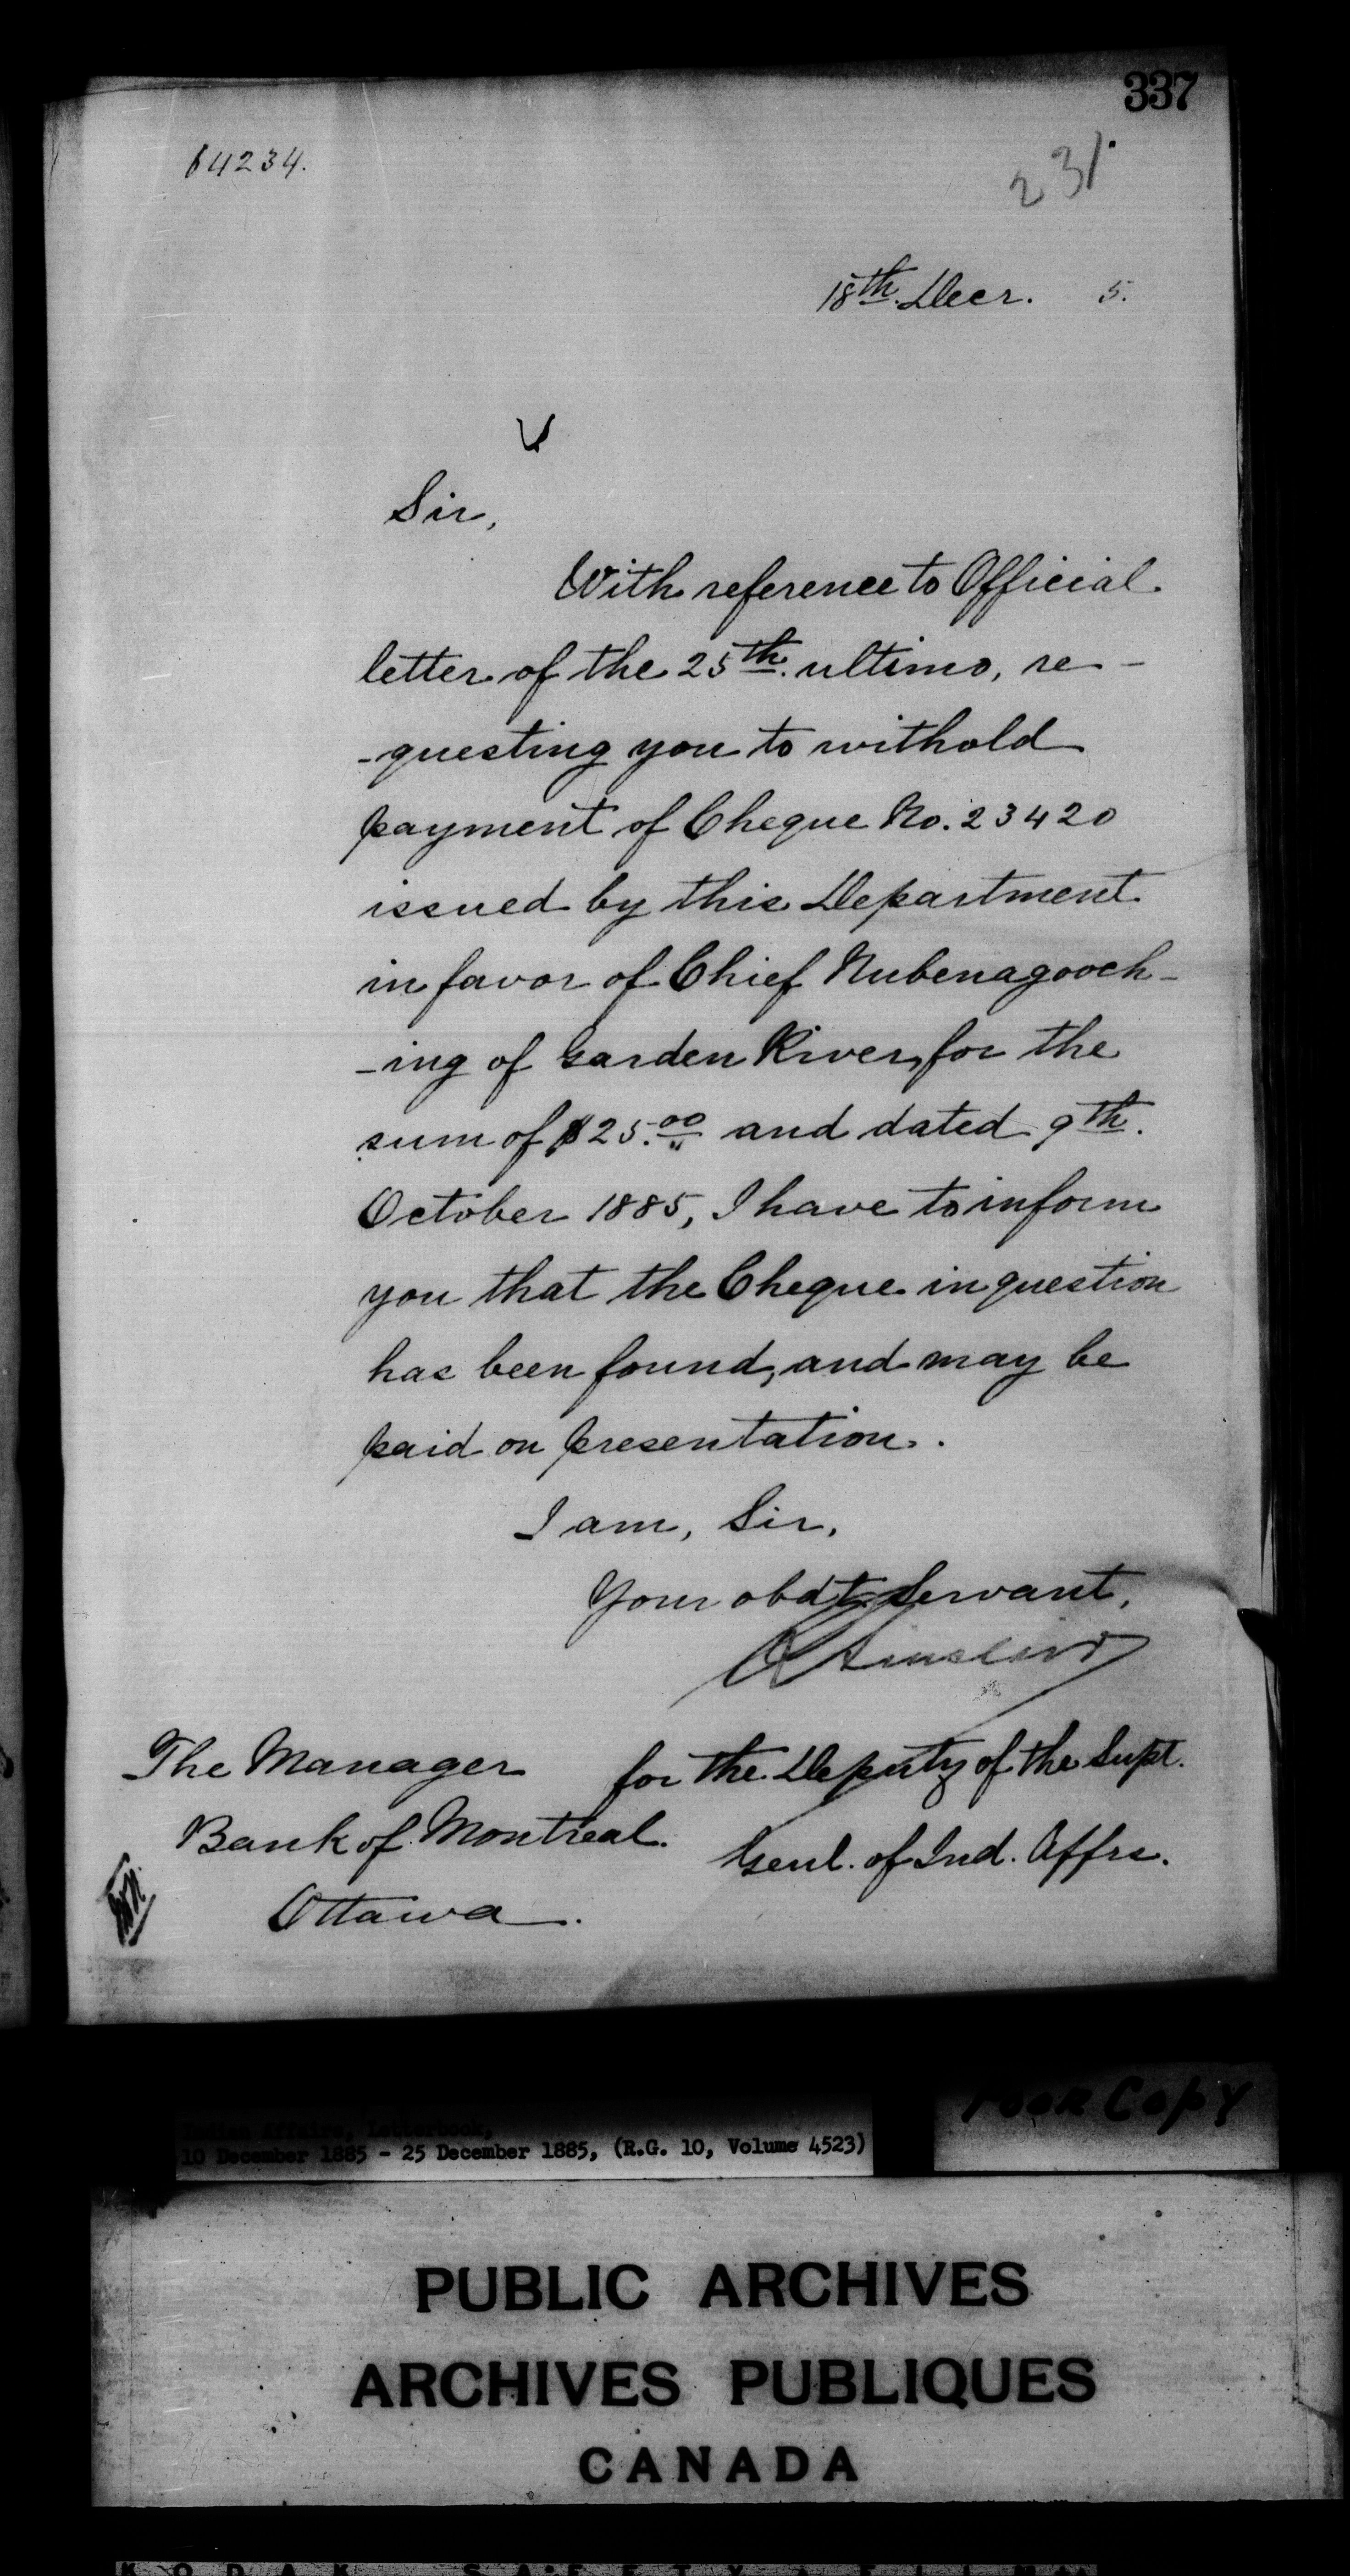 337
64234.
231.
18th. Decr. 5.
Sir,
With reference to Official
letter of the 25th. ultimo, re-
-questing you to withold
payment of Cheque No. 23420
issued by this Department
in favor of Chief Nubenagooch-
-ing of Garden River, for the
sum of $25.00 and dated 9th.
October 1885, I have to inform
you that the Cheque in question
has been found, and may be
paid on presentation.
I am, Sir,
Your obdt. Servant,
The Manager
Bank of Montreal.
Ottawa.
for the Deputy of the Supt.
Genl. of Ind. Affrs.
Poor Copy
Indian Affairs, Letterbook,
10 December 1885 - 25 December 1885, (R.G. 10, Volume 4523)
PUBLIC ARCHIVES
ARCHIVES PUBLIQUES
CANADA
KODAK SAFETY FILM